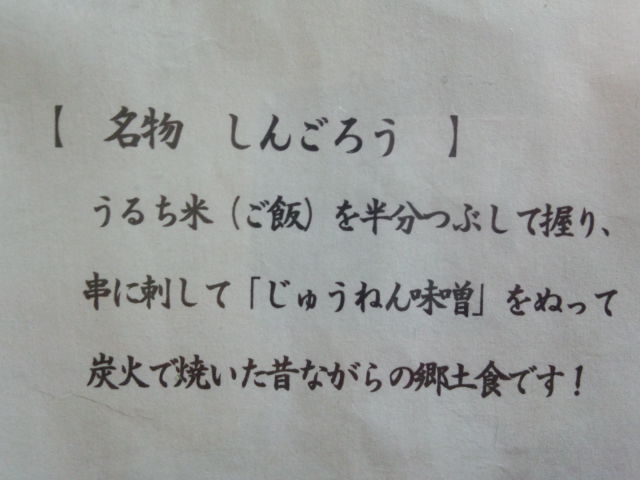 【 名物 しんごろう 】
うるち米（ご飯）を半分つぶして握り、
串に刺して「じゅうねん味噌」をぬって
炭火で焼いた昔ながらの郷土食です！